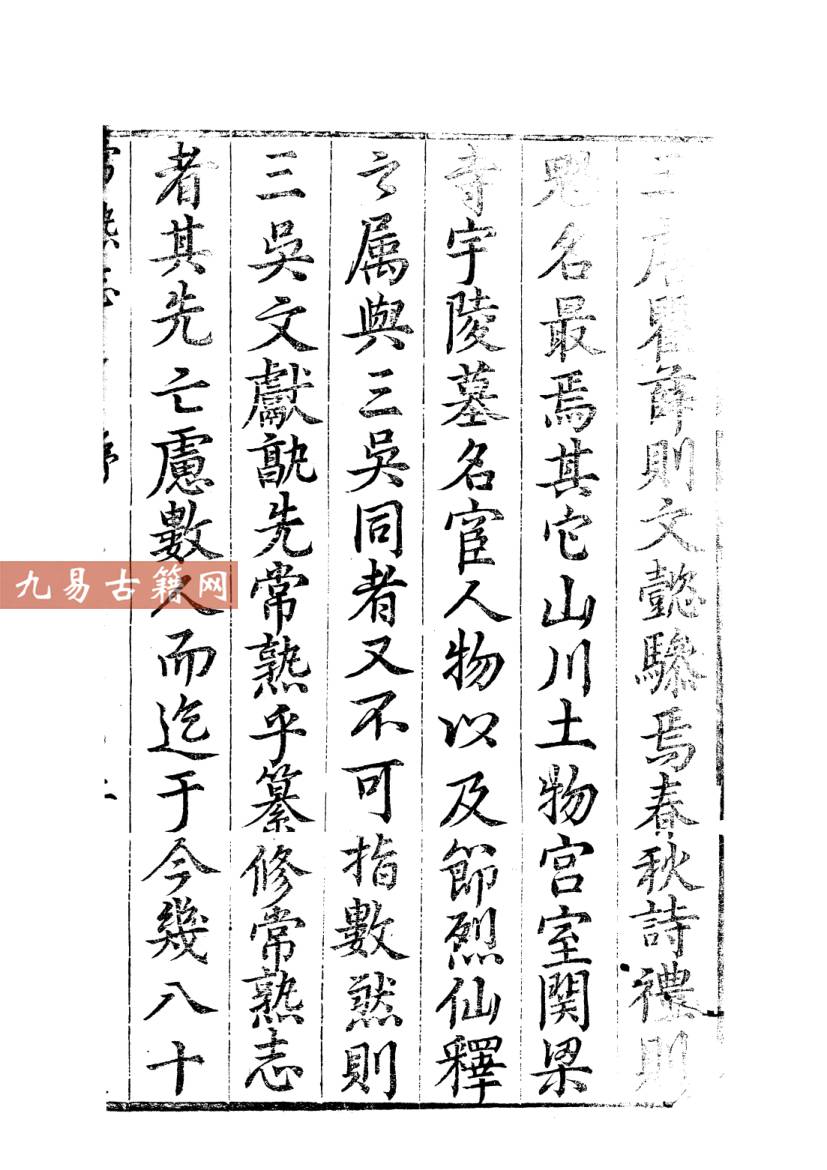 三唐瞿薛則文懿驂焉春秋詩禮則
魁名最焉其它山川土物宫室関梁
寺宇陵墓名宦人物以及節烈仙釋
之属與三吳同者又不可指數然則
三吳文獻孰先常熟乎纂修常熟志
者其先亡慮數人而迄于今幾八十
常熟志
序
九易古籍网